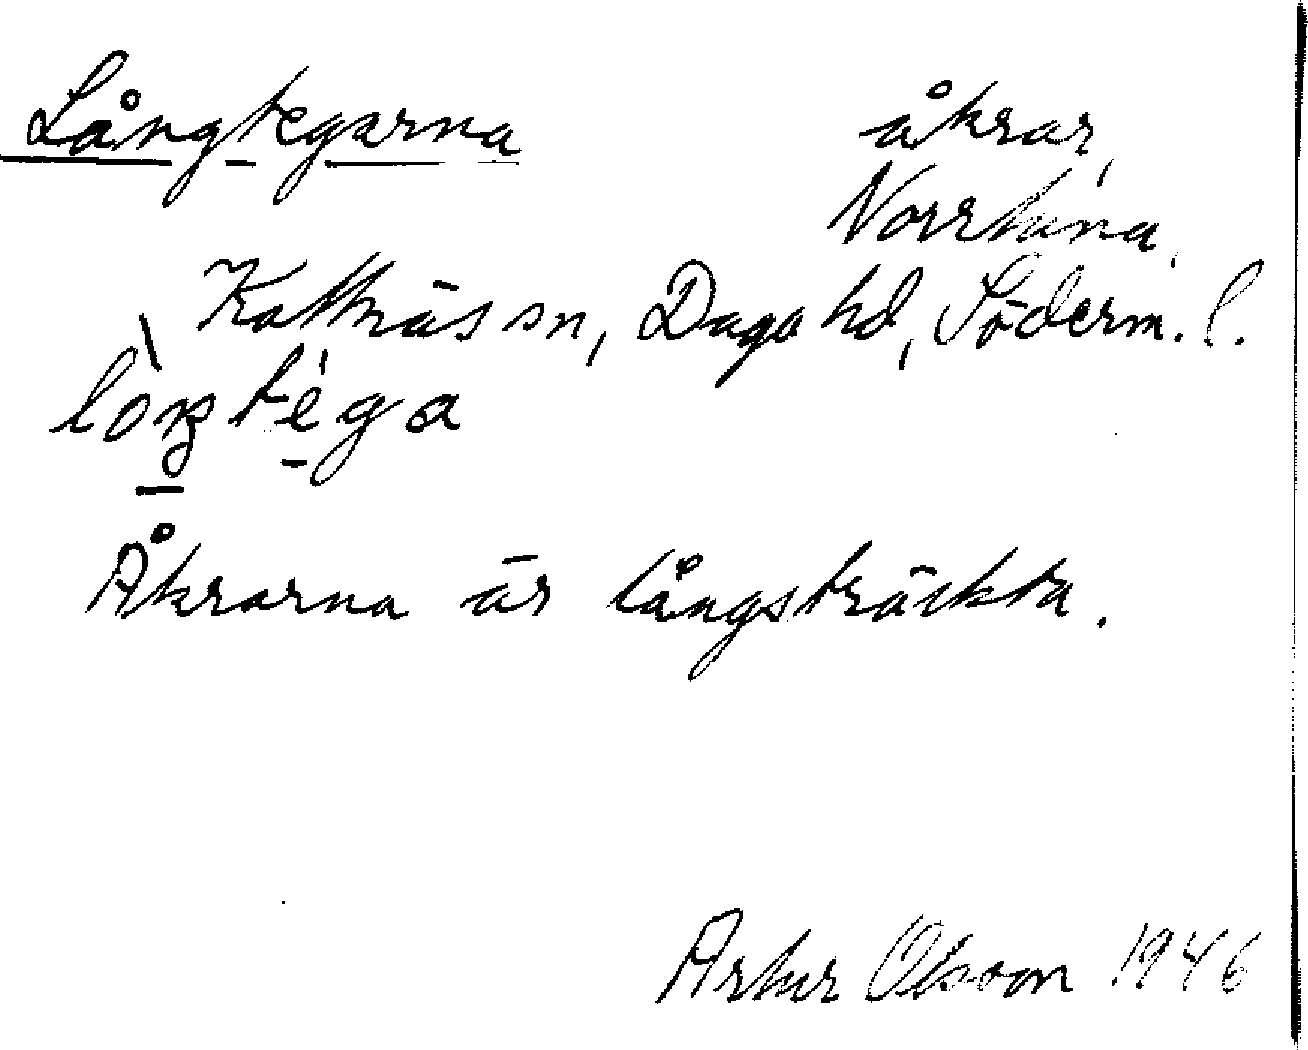 Långtegarna åkrar,
Norrtuna,
Kattnäs sn, Daga hd, Söderm. l.
lòŋtéga
Åkrarna är långsträckta.
Artur Olsson 1946